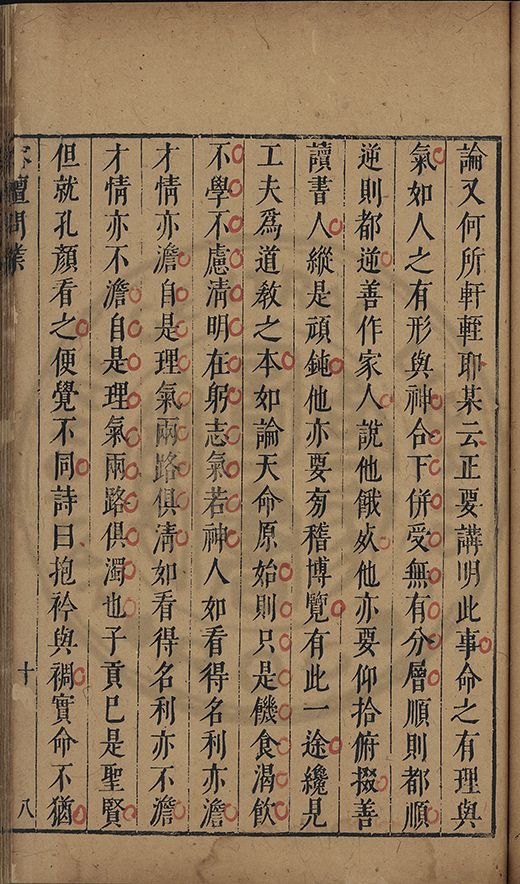 論又何所軒輊耶某云正要講明此事命之有理與
氣如人之有形與神合下併受無有分層順則都順
逆則都逆善作家人說他餓死他亦要仰拾俯掇善
讀書人縱是頑鈍他亦要旁稽博覽有此一途纔見
工夫為道敎之本如論天命原始則只是饑食渴飲
不學不慮清明在躬志氣若神人如看得名利亦澹
才情亦澹自是理氣兩路俱清如看得名利亦不澹
才情亦不澹自是理氣兩路俱濁也子貢已是聖賢
但就孔顏看之便覺不同詩曰抱衾與裯實命不猶
壇問業
十
八